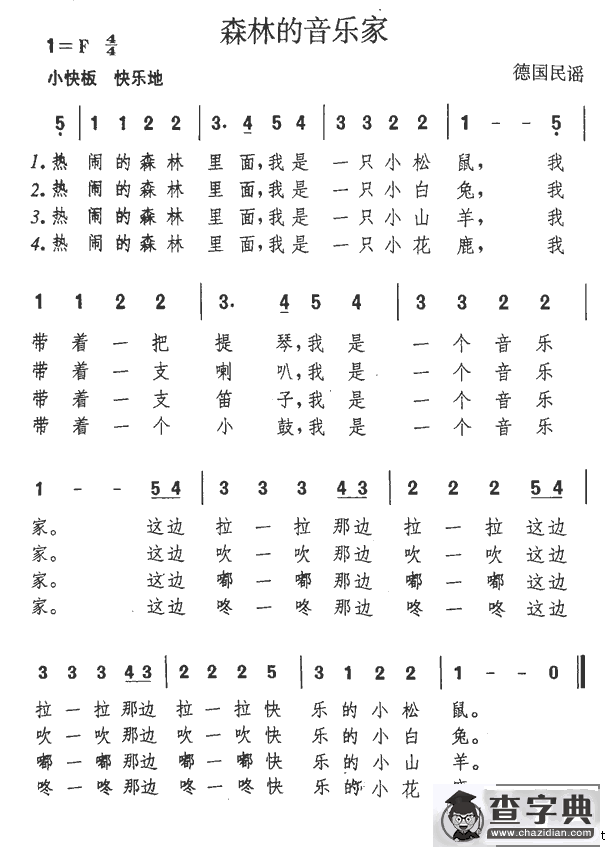 森林的音乐家
1=F 4/4
小快板 快乐地
德国民谣
5 | 1 1 2 2 | 3. 4 5 4 | 3 3 2 2 | 1 - - 5 |
1.热 闹的森林 里面,我是 一只小松 鼠, 我
2.热 闹的森林 里面,我是 一只小白 兔, 我
3.热 闹的森林 里面,我是 一只小山 羊, 我
4.热 闹的森林 里面,我是 一只小花 鹿, 我
1 1 2 2 | 3. 4 5 4 | 3 3 2 2 |
带着一把 提琴,我是 一个音乐
带着一支 喇叭,我是 一个音乐
带着一支 笛子,我是 一个音乐
带着一个 小鼓,我是 一个音乐
1 - - 5 4 | 3 3 3 4 3 | 2 2 2 5 4 |
家。 这边 拉一拉那边 拉一拉这边
家。 这边 吹一吹那边 吹一吹这边
家。 这边 嘟一嘟那边 嘟一嘟这边
家。 这边 咚一咚那边 咚一咚这边
3 3 3 4 3 | 2 2 2 5 | 3 1 2 2 | 1 - - 0 ‖
拉一拉那边 拉一拉快 乐的小松 鼠。
吹一吹那边 吹一吹快 乐的小白 兔。
嘟一嘟那边 嘟一嘟快 乐的小山 羊。
咚一咚那边 咚一咚快 乐的小花
查字典
www.chazidian.com
t